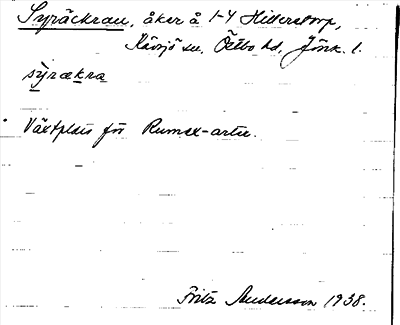 Syräckran, åker å 1-4 Hillerstorp,
Kävsjö sn. Östbo hd, Jönk. l.
syrækra
Växtplats för Rumex-arter.
Fritz Andersson 1938.